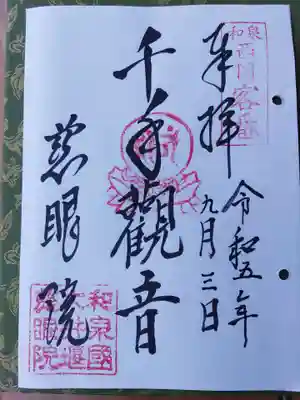 奉拝
令和五年
九月三日
千手觀音
慈眼院
和泉
西国客番
和泉國
大井堰
慈眼院